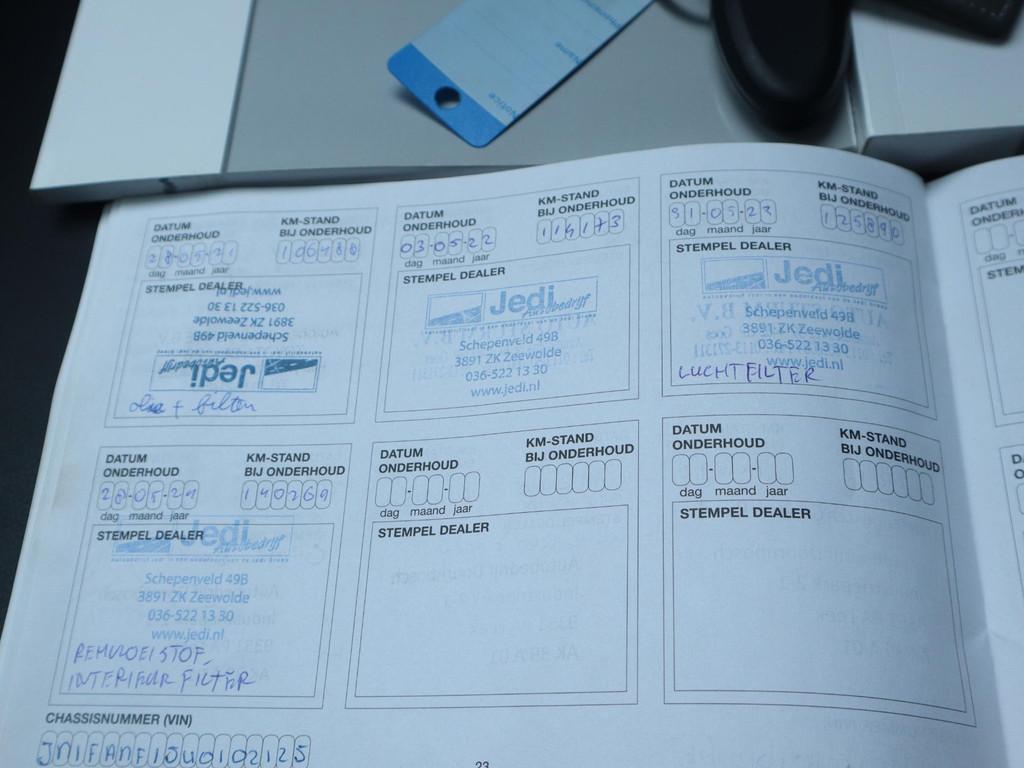 Notice
DATUM ONDERHOUD
KM-STAND BIJ ONDERHOUD
28-05-21
106488
dag maand jaar
STEMPEL DEALER
Jedi
Autobedrijf
Schepenveld 49B
3891 ZK Zeewolde
036-522 13 30
www.jedi.nl
olie + filter
DATUM ONDERHOUD
KM-STAND BIJ ONDERHOUD
03-05-22
114173
dag maand jaar
STEMPEL DEALER
Jedi
Autobedrijf
Schepenveld 49B
3891 ZK Zeewolde
036-522 13 30
www.jedi.nl
DATUM ONDERHOUD
KM-STAND BIJ ONDERHOUD
31-05-23
125890
dag maand jaar
STEMPEL DEALER
Jedi
Autobedrijf
Schepenveld 49B
3891 ZK Zeewolde
036-522 13 30
www.jedi.nl
LUCHTFILTER
DATUM ONDERHOUD
KM-STAND BIJ ONDERHOUD
28-05-24
140269
dag maand jaar
STEMPEL DEALER
Jedi
Autobedrijf
Schepenveld 49B
3891 ZK Zeewolde
036-522 13 30
www.jedi.nl
REMVLOEISTOF,
INTERIEUR FILTER
DATUM ONDERHOUD
KM-STAND BIJ ONDERHOUD
dag maand jaar
STEMPEL DEALER
DATUM ONDERHOUD
KM-STAND BIJ ONDERHOUD
dag maand jaar
STEMPEL DEALER
CHASSISNUMMER (VIN)
JN1FANF15U0102125
23